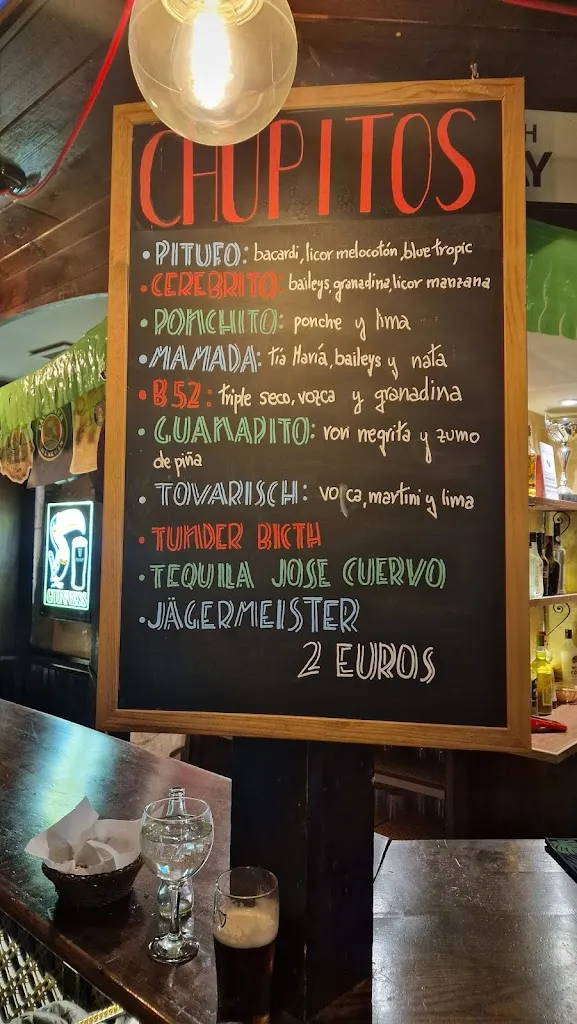 CHUPITOS
• PITUFO: bacardi, licor melocotón, blue tropic
• CEREBRITO: baileys, granadina, licor manzana
• PONCHITO: ponche y lima
• MAMADA: tía María, baileys y nata
• B52: triple seco, vozca y granadina
• GUAMAPITO: ron negrita y zumo
de piña
• TOVARISCH: vozca, martini y lima
• TUNDER BICTH
• TEQUILA JOSE CUERVO
• JÄGERMEISTER
2 EUROS
GUINNESS
H
AY